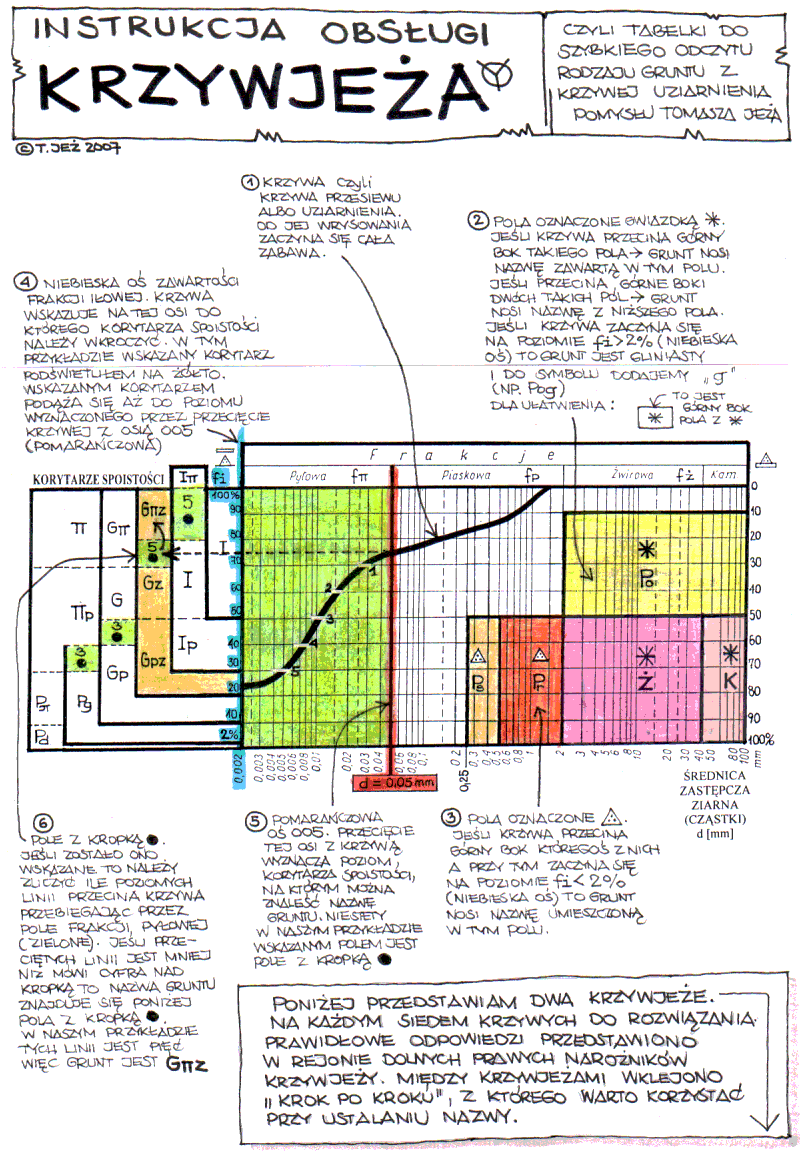 INSTRUKCJA OBSŁUGI
KRZYWJEŻA
CZYLI TABELKI DO
SZYBKIEGO ODCZYTU
RODZAJU GRUNTU Z
KRZYWEJ UZIARNIENIA
POMYSŁU TOMASZA JEŻA
© T. JEŻ 2007
① KRZYWA CZYLI
KRZYWA PRZESIEWU
ALBO UZIARNIENIA.
OD JEJ WRYSOWANIA
ZACZYNA SIĘ CAŁA
ZABAWA.
② POLA OZNACZONE GWIAZDKĄ *.
JEŚLI KRZYWA PRZECINA GÓRNY
BOK TAKIEGO POLA → GRUNT NOSI
NAZWĘ ZAWARTĄ W TYM POLU.
JEŚLI PRZECINA GÓRNE BOKI
DWÓCH TAKICH PÓL → GRUNT
NOSI NAZWĘ Z NIŻSZEGO POLA.
JEŚLI KRZYWA ZACZYNA SIĘ
NA POZIOMIE fi>2% (NIEBIESKA
OŚ) TO GRUNT JEST GLINIASTY
I DO SYMBOLU DODAJEMY „g"
(NP. Pog)
DLA UŁATWIENIA:
TO JEST
GÓRNY BOK
POLA Z *
④ NIEBIESKA OŚ ZAWARTOŚCI
FRAKCJI IŁOWEJ. KRZYWA
WSKAZUJE NA TEJ OSI DO
KTÓREGO KORYTARZA SPOISTOŚCI
NALEŻY WKROCZYĆ. W TYM
PRZYKŁADZIE WSKAZANY KORYTARZ
PODŚWIETLIŁEM NA ŻÓŁTO.
WSKAZANYM KORYTARZEM
PODĄŻA SIĘ AŻ DO POZIOMU
WYZNACZONEGO PRZEZ PRZECIĘCIE
KRZYWEJ Z OSIĄ 005
(POMARAŃCZOWĄ)
F r a k c j e
KORYTARZE SPOISTOŚCI
Iπ fi Pyłowa fπ Piaskowa fp Żwirowa fż Kam.
100% 90 60 50 40 30 20 10 2%
0 10 20 30 40 50 60 70 80 90 100%
π Gπ Gπz 5 I
5
Gz I
πp G
3
3
Gp Gpz Ip
Pπ Pg
Pd
1 2 3 4 5
* Po
Ps Pr * Ż * K
0,002 0,003 0,004 0,005 0,006 0,01 0,02 0,03 0,04 0,06 0,08 0,1 0,2 0,25 0,3 0,4 0,5 0,6 0,8 1 2 3 4 5 10 20 30 40 50 80 100 mm
d = 0,05 mm
ŚREDNICA
ZASTĘPCZA
ZIARNA
(CZĄSTKI)
d [mm]
⑥
POLE Z KROPKĄ ●.
JEŚLI ZOSTAŁO ONO
WSKAZANE TO NALEŻY
ZLICZYĆ ILE POZIOMYCH
LINII PRZECINA KRZYWA
PRZEBIEGAJĄC PRZEZ
POLE FRAKCJI PYŁOWEJ
(ZIELONE). JEŚLI PRZE-
CIĘTYCH LINII JEST MNIEJ
NIŻ MÓWI CYFRA NAD
KROPKĄ TO NAZWA GRUNTU
ZNAJDUJE SIĘ PONIŻEJ
POLA Z KROPKĄ ●.
W NASZYM PRZYKŁADZIE
TYCH LINII JEST PIĘĆ
WIĘC GRUNT JEST Gπz
⑤ POMARAŃCZOWA
OŚ 005. PRZECIĘCIE
TEJ OSI Z KRZYWĄ
WYZNACZA POZIOM,
KORYTARZA SPOISTOŚCI,
NA KTÓRYM MOŻNA
ZNALEŚĆ NAZWĘ
GRUNTU. NIESTETY
W NASZYM PRZYKŁADZIE
WSKAZANYM POLEM JEST
POLE Z KROPKĄ ●
③ POLA OZNACZONE
JEŚLI KRZYWA PRZECINA
GÓRNY BOK KTÓREGOŚ Z NICH
A PRZY TYM ZACZYNA SIĘ
NA POZIOMIE fi<2%
(NIEBIESKA OŚ) TO GRUNT
NOSI NAZWĘ UMIESZCZONĄ
W TYM POLU.
PONIŻEJ PRZEDSTAWIAM DWA KRZYWJEŻE.
NA KAŻDYM SIEDEM KRZYWYCH DO ROZWIĄZANIA.
PRAWIDŁOWE ODPOWIEDZI PRZEDSTAWIONO
W REJONIE DOLNYCH PRAWYCH NAROŻNIKÓW
KRZYWJEŻY. MIĘDZY KRZYWJEŻAMI WKLEJONO
„KROK PO KROKU", Z KTÓREGO WARTO KORZYSTAĆ
PRZY USTALANIU NAZWY.